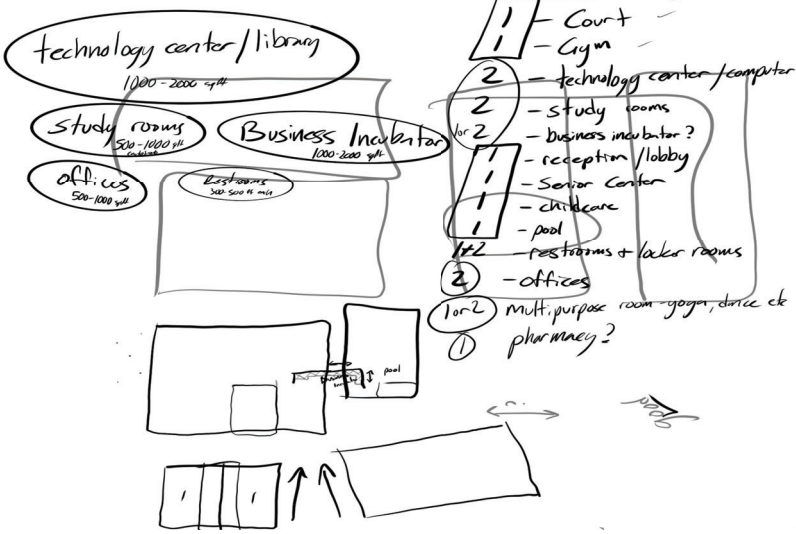 technology center/library
1000-2000 sqft
Study rooms
500-1000 sqft
Business Incubator
1000-2000 sqft
offices
500-1000 sqft
Restrooms
1 - Court
1 - Gym
2 - technology center/computer
2 - study rooms
1or 2 - business incubator?
1 - reception/lobby
1 - Senior Center
1 - childcare
1 - pool
1+2 - restrooms + locker rooms
2 - offices
1 or 2 multipurpose room - yoga, dance etc
1 pharmacy?
pool
Business